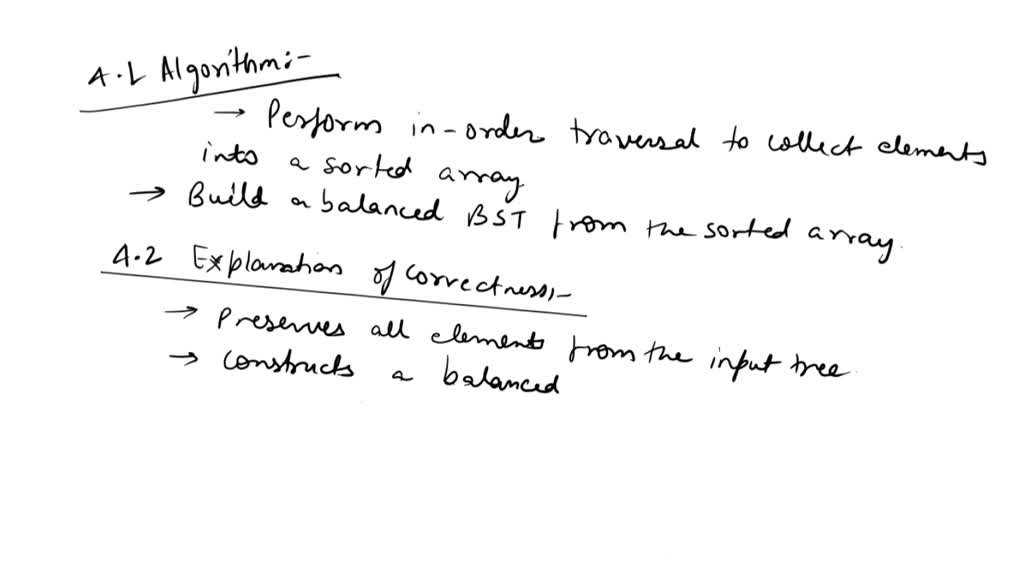 A.1 Algorithm:-
→ Perform in-order traversal to collect elements
into a sorted array
→ Build a balanced BST from the sorted array.
A.2 Explanation of correctness:-
→ Preserves all elements from the input tree.
→ constructs a balanced